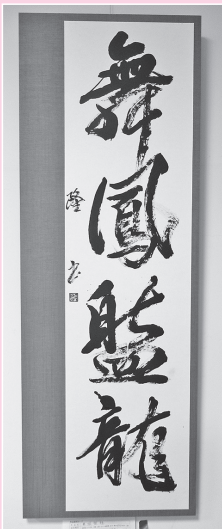 舞鳳盤龍
隆